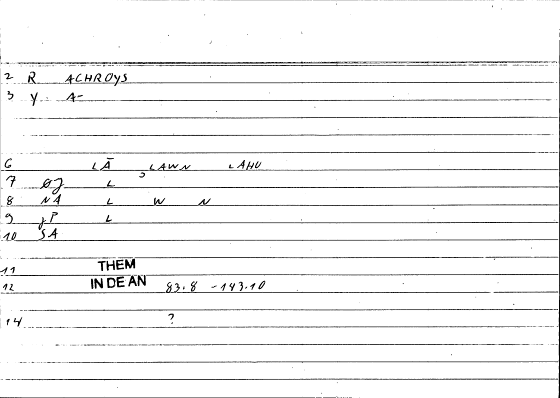 2 R ACHROYS
3 Y A-
6 LĀ LAWN LAHU
7 ØJ L
8 NA L W N
9 JP L
10 SA
11 THEM
12 IN DE AN 83.8 -143.10
14 ?